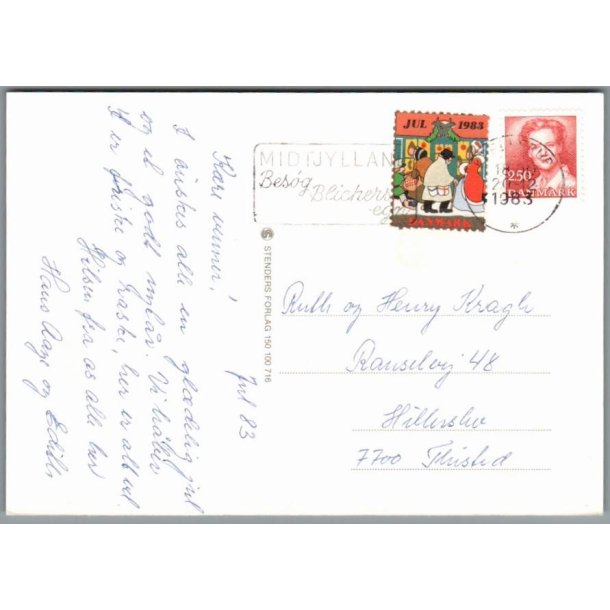 Jul 83
Kære venner!
I ønskes alle en glædelig jul
og et godt nytår. Vi håber
I er friske og raske, her er alt vel
Hilsen fra os alle her
Hans Aage og Edith
STENDERS FORLAG 150 100 716
MIDTJYLLAN
Besøg Blichers
JUL 1983
DANMARK
2.50
DANMARK
1983
Ruth og Henry Kragh
48
Hillerslev
7700 Thisted